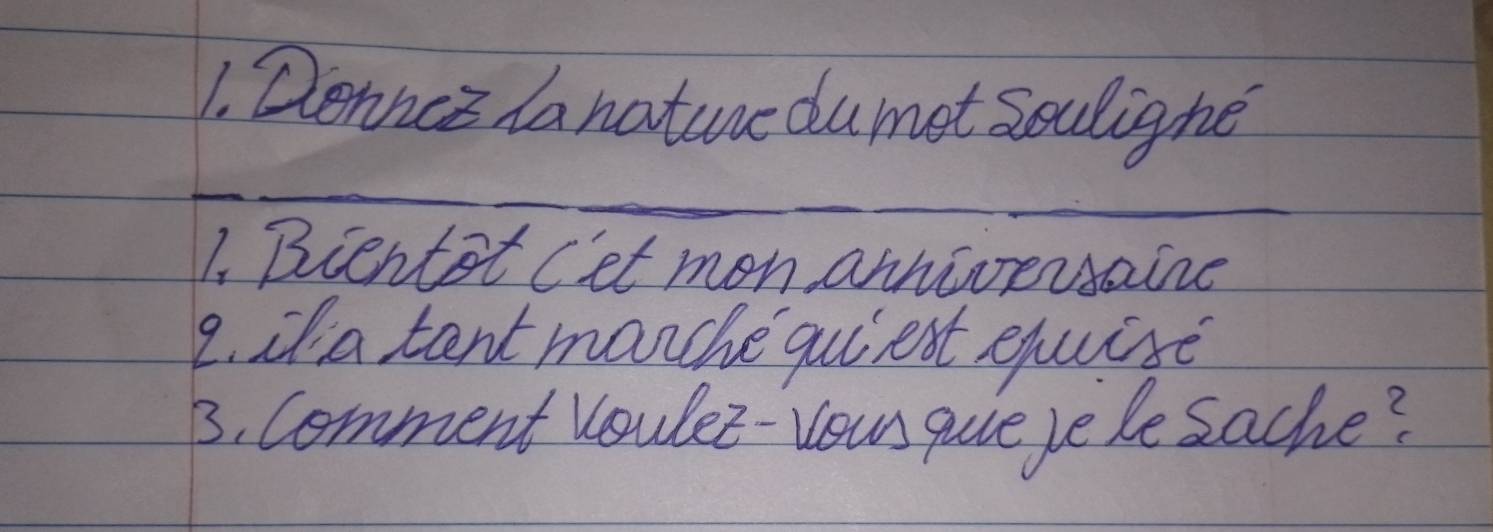 1. Donnez la nature du mot Souligné
1. Bientôt c'et mon anniversaire
2. il a tant marché qui est epuisé
3. Comment Voulez-Vous que je le Sache?